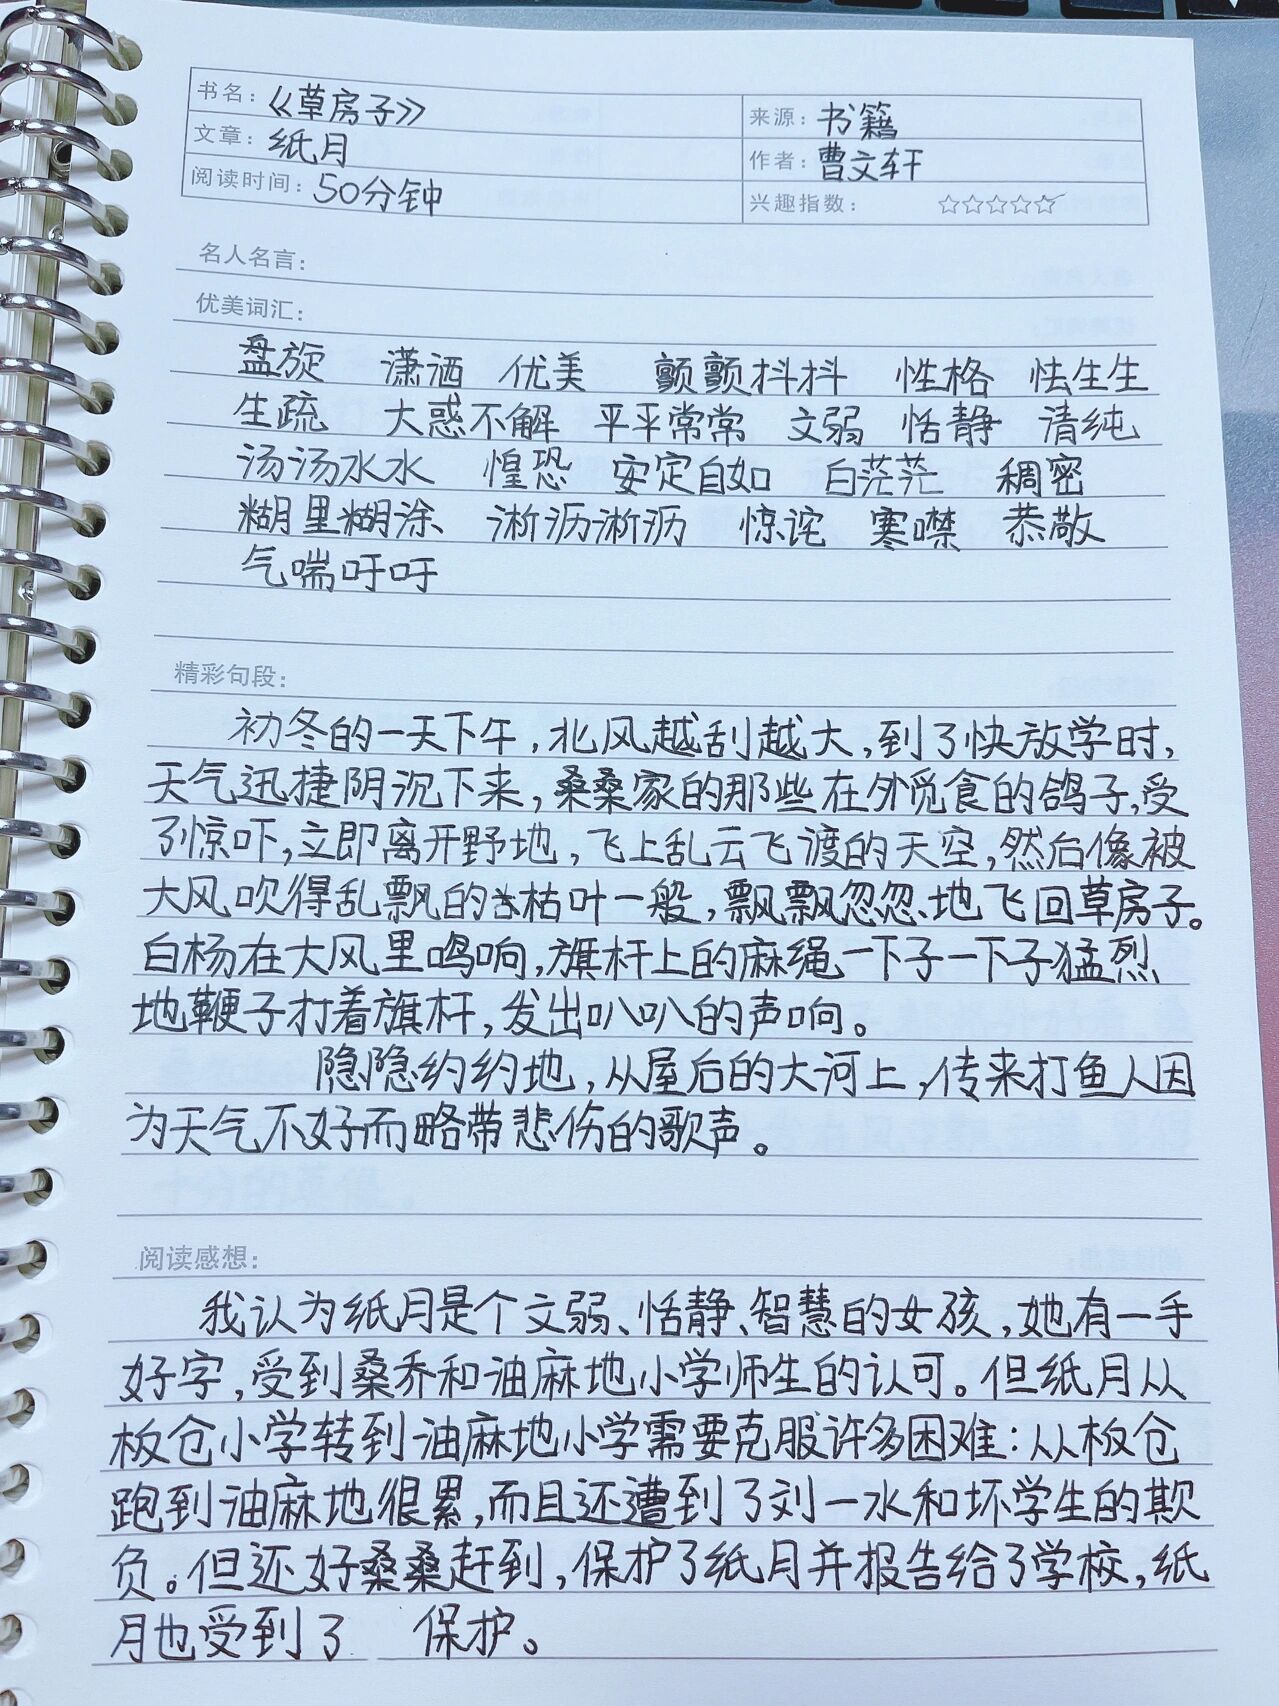 书名：《草房子》 来源：书籍
文章：纸月 作者：曹文轩
阅读时间：50分钟 兴趣指数：☆☆☆☆☆
名人名言：
优美词汇：
盘旋 潇洒 优美 颤颤抖抖 性格 怯生生
生疏 大惑不解 平平常常 文弱 恬静 清纯
汤汤水水 惶恐 安定自如 白茫茫 稠密
糊里糊涂 淅沥淅沥 惊诧 寒噤 恭敬
气喘吁吁
精彩句段：
初冬的一天下午，北风越刮越大，到了快放学时，
天气迅捷阴沉下来，桑桑家的那些在外觅食的鸽子，受
了惊吓，立即离开野地，飞上乱云飞渡的天空，然后像被
大风吹得乱飘的枯叶一般，飘飘忽忽地飞回草房子。
白杨在大风里鸣响，旗杆上的麻绳一下子一下子猛烈
地鞭子打着旗杆，发出叭叭的声响。
隐隐约约地，从屋后的大河上，传来打鱼人因
为天气不好而略带悲伤的歌声。
阅读感想：
我认为纸月是个文弱、恬静、智慧的女孩，她有一手
好字，受到桑乔和油麻地小学师生的认可。但纸月从
板仓小学转到油麻地小学需要克服许多困难：从板仓
跑到油麻地很累，而且还遭到了刘一水和坏学生的欺
负。但还好桑桑赶到，保护了纸月并报告给了学校，纸
月也受到了 保护。